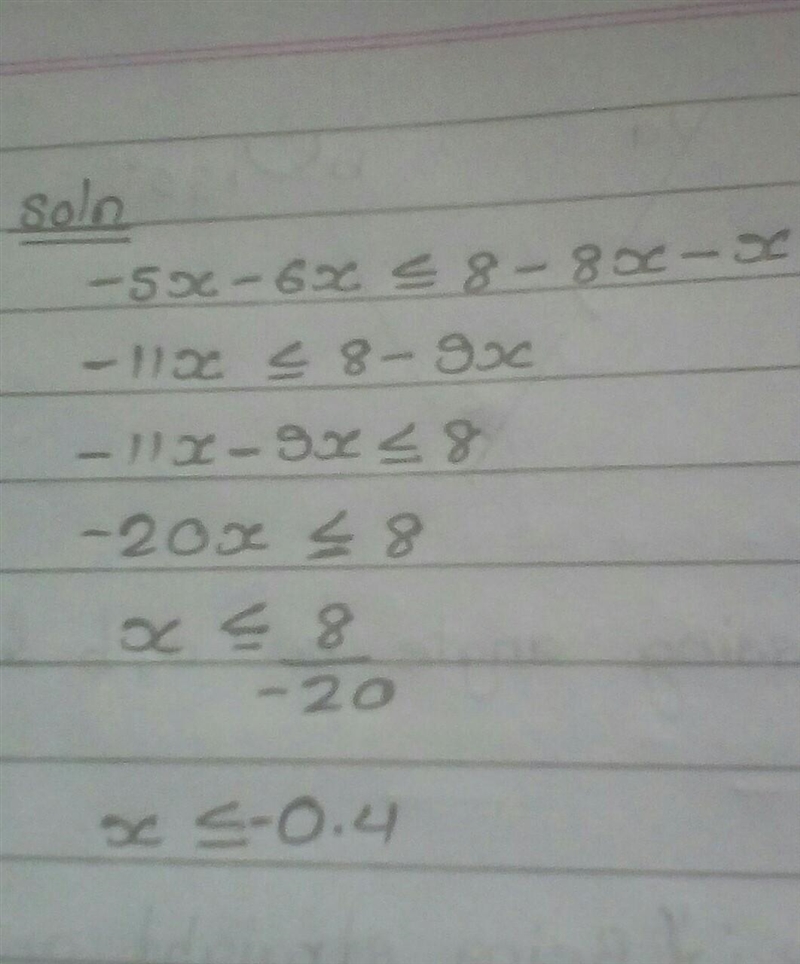 soln
-5x - 6x ≤ 8 - 8x - x
-11x ≤ 8 - 9x
-11x - 9x ≤ 8
-20x ≤ 8
x ≤ 8
-20
x ≤ -0.4